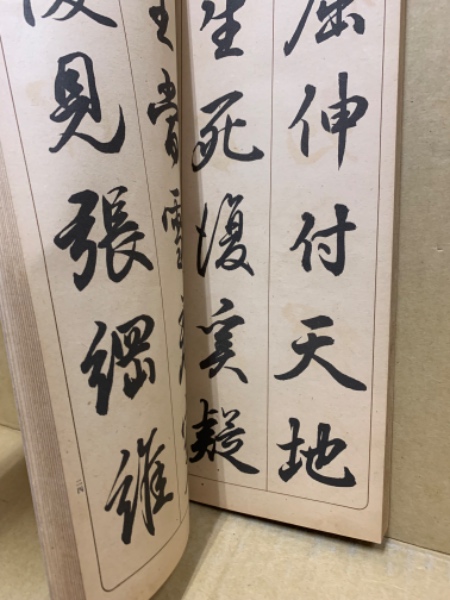 屈伸付天地
生死復奚疑
見張綱維
二四